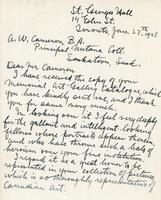 St. George's Hall
14 Elm St.
Toronto, Jan. 27th 1925
A. W. Cameron, B.A.
Principal, Nutana Coll.
Saskatoon Sask.
Dear Mr Cameron
I have received the copy of your
Memorial Art Gallery Catalogue, which
you have kindly sent me, and I thank
you for same very much.
In looking over it I feel very deeply
for the gallant and intelligent looking
fellows whose portraits appear therein
and who have thrown such a halo of
heroism over your fine institution.
I regard it as a great honor to be
represented in your collection of pictures
which is so thoroughly representative of
Canadian Art.